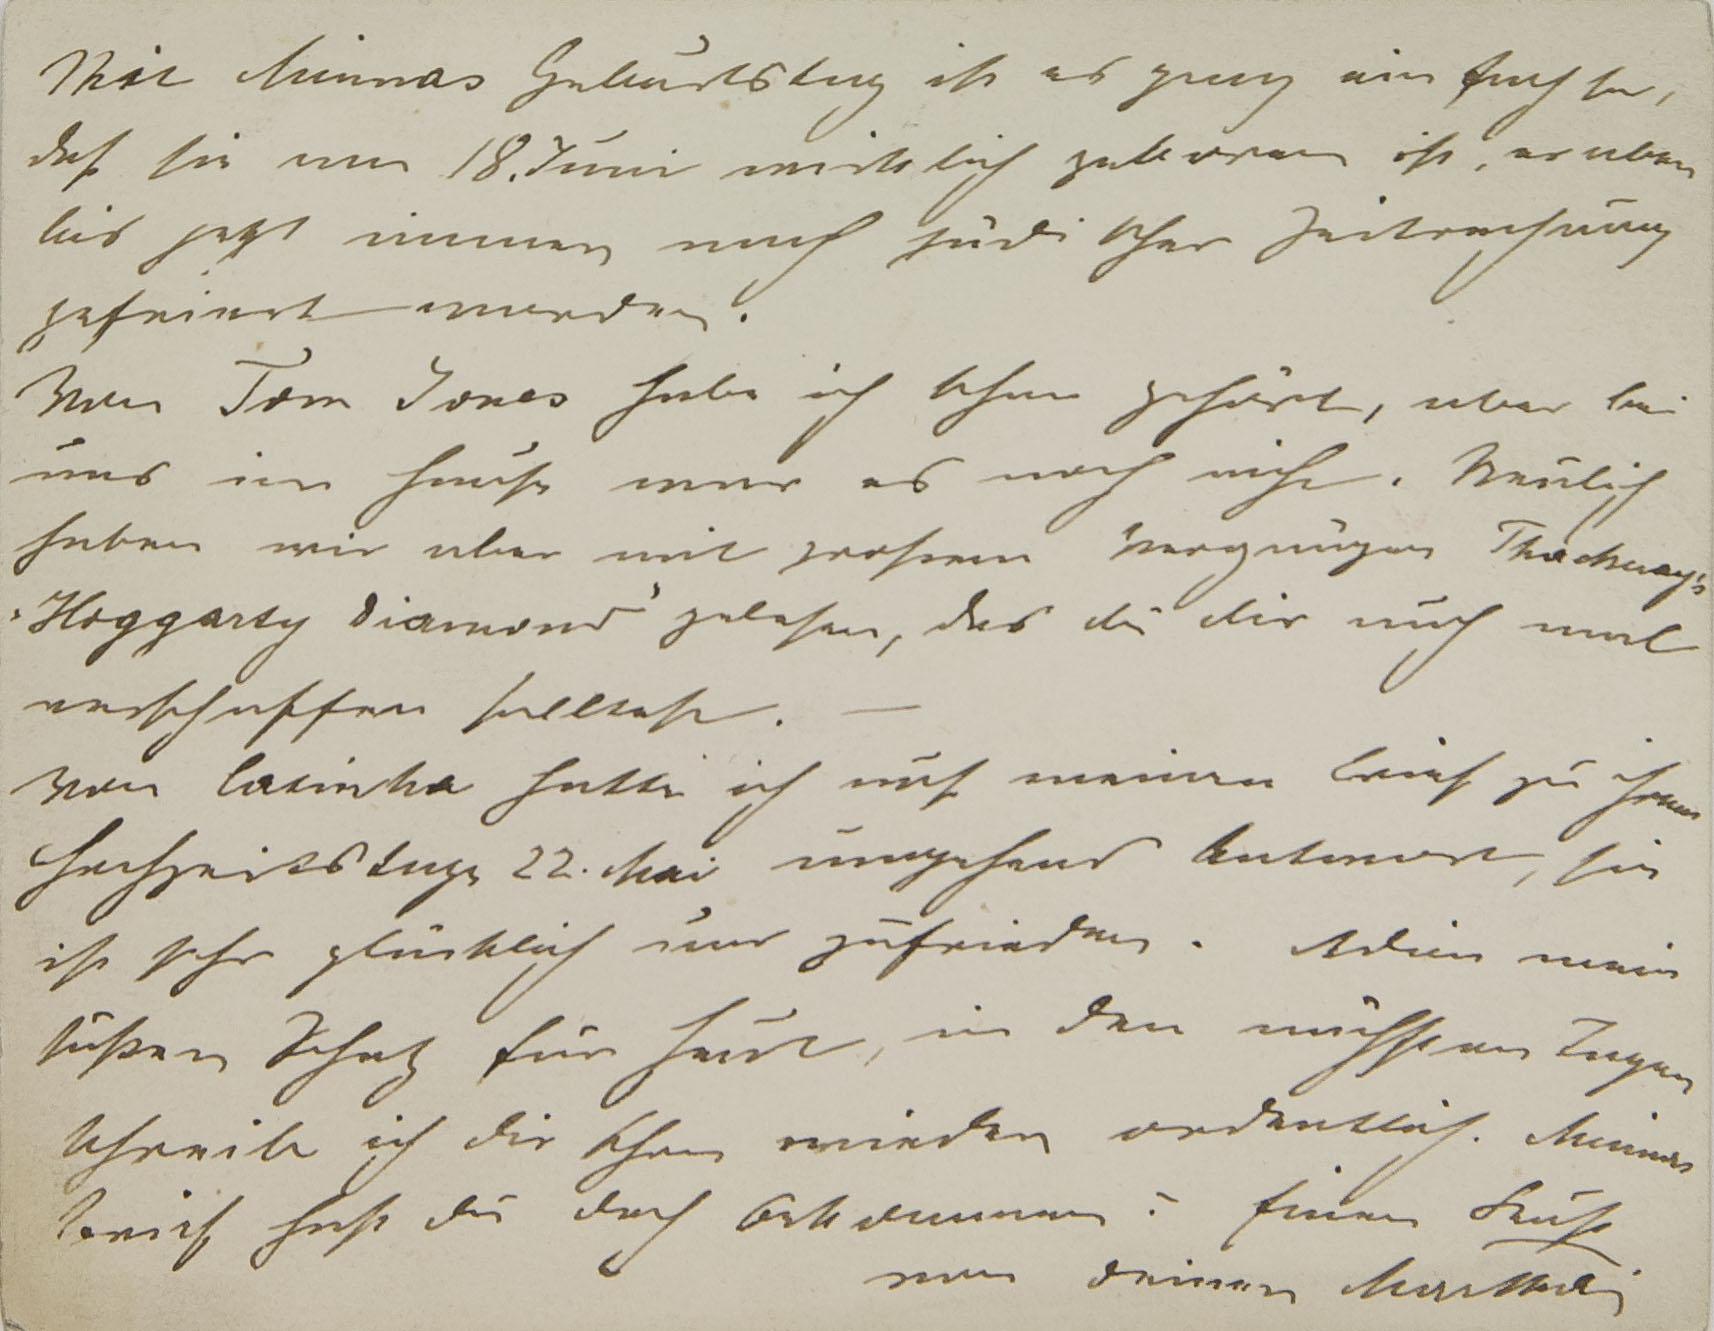 Mit Minnas Geburtstag ist es ganz einfach so,
daß sie am 18. Juni wirklich geboren ist, er aber
bis jetzt immer nach jüdischer Zeitrechnung
gefeiert worden.
Von Tom Jones habe ich schon gehört, aber bei
uns im Hause war es noch nicht. Neulich
haben wir aber mit großem Vergnügen Thackeray's
"Hoggarty Diamond" gelesen, das du dir auch mal
verschaffen solltest. —
Von Catinka hatte ich auf meinen Brief zu ihrem
Hochzeitstage 22. Mai umgehend Antwort, sie
ist sehr glücklich und zufrieden. Adieu mein
süßer Schatz für heut, in den nächsten Tagen
schreibe ich dir schon wieder ordentlich. Minnas
Brief hast du doch bekommen? Einen Kuß
von deinem Marthchen